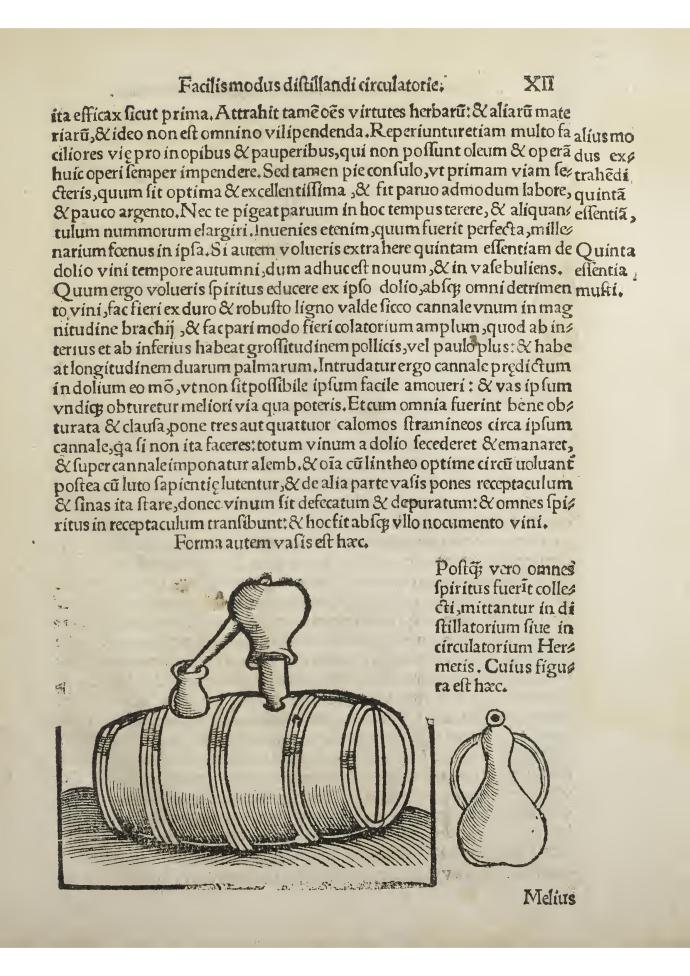 Facilis modus distillandi circulatorie. XII
ita efficax sicut prima. Attrahit tamē oēs virtutes herbarū: & aliarū mate
riarū, & ideo non est omnino vilipendenda. Reperiuntur etiam multo fa
ciliores vię pro inopibus & pauperibus, qui non possunt oleum & operā
huic operi semper impendere. Sed tamen pie consulo, vt primam viam se⸗
cteris, quum sit optima & excellentissima, & fit paruo admodum labore,
& pauco argento. Nec te pigeat paruum in hoc tempus terere, & aliquan⸗
tulum nummorum elargiri. Inuenies etenim, quum fuerit perfecta, mille⸗
narium fœnus in ipsa. Si autem volueris extrahere quintam essentiam de
dolio vini tempore autumni, dum adhuc est nouum, & in vase buliens.
Quum ergo volueris spiritus educere ex ipso dolio, absq; omni detrimen
to, vini, fac fieri ex duro & robusto ligno valde sicco cannale vnum in mag
nitudine brachij, & fac pari modo fieri colatorium amplum, quod ab in⸗
terius et ab inferius habeat grossitudinem pollicis, vel paulo plus: & habe
at longitudinem duarum palmarum. Intrudatur ergo cannale prędictum
in dolium eo mō, vt non sit possibile ipsum facile amoueri: & vas ipsum
vndiq; obturetur meliori via qua poteris. Et cum omnia fuerint bene ob⸗
turata & clausa, pone tres aut quattuor calomos stramineos circa ipsum
cannale, q̄a si non ita faceres: totum vinum a dolio secederet & emanaret,
& super cannale imponatur alemb. & oīa cū lintheo optime circū uoluant̄
postea cū luto sapientię lutentur, & de alia parte vasis pones receptaculum
& sinas ita stare, donec vinum sit defecatum & depuratum: & omnes spi⸗
ritus in receptaculum transibunt: & hoc fit absq; vllo nocumento vini.
Forma autem vasis est hæc.
alius mo
dus ex⸗
trahēdi
quintā
essentiā,
Quinta
essentia
musti.
Postq̄; vero omnes
spiritus fuerīt colle⸗
cti, mittantur in di
stillatorium siue in
circulatorium Her⸗
metis. Cuius figu⸗
ra est hæc.
Melius